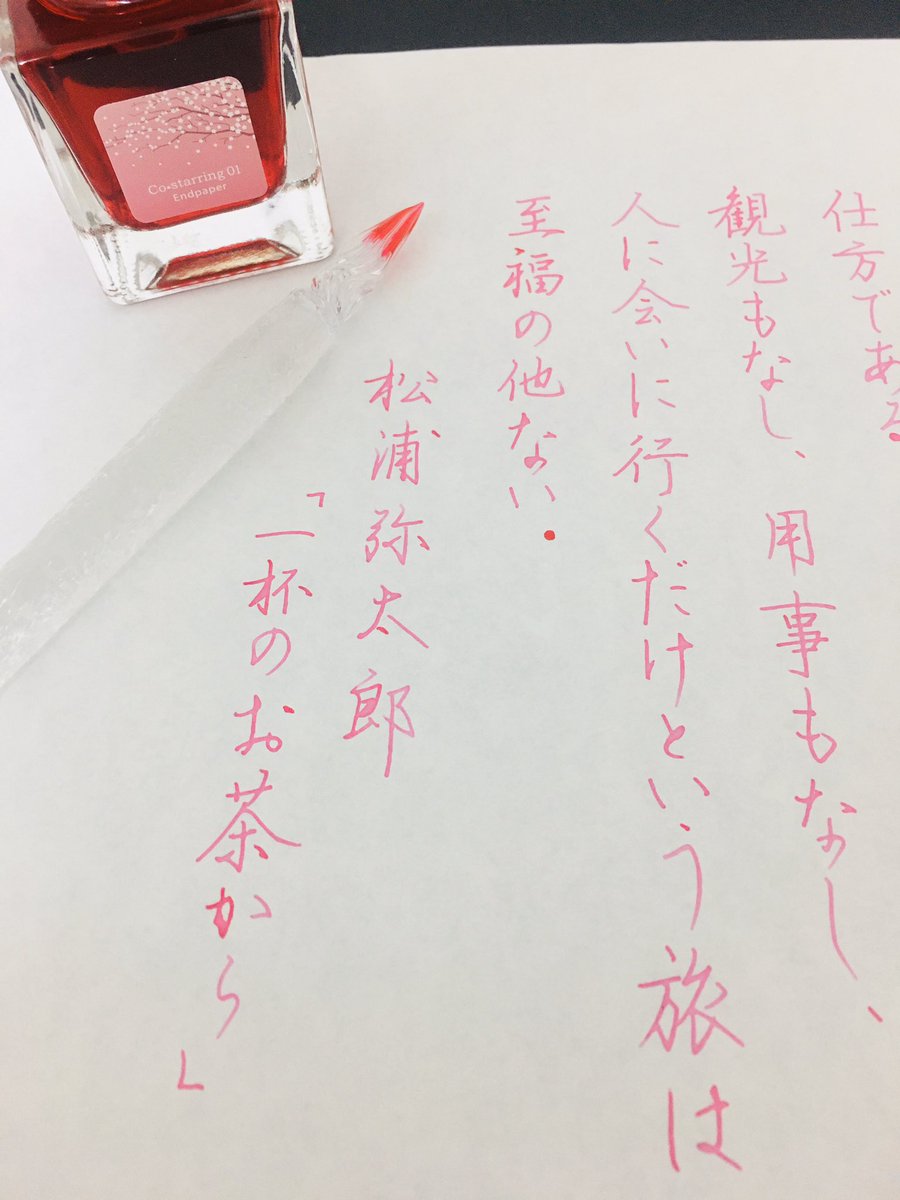 Co-starring 01
Endpaper
仕方である
観光もなし、用事もなし、
人に会いに行くだけという旅は
至福の他ない.
松浦弥太郎
「一杯のお茶から」